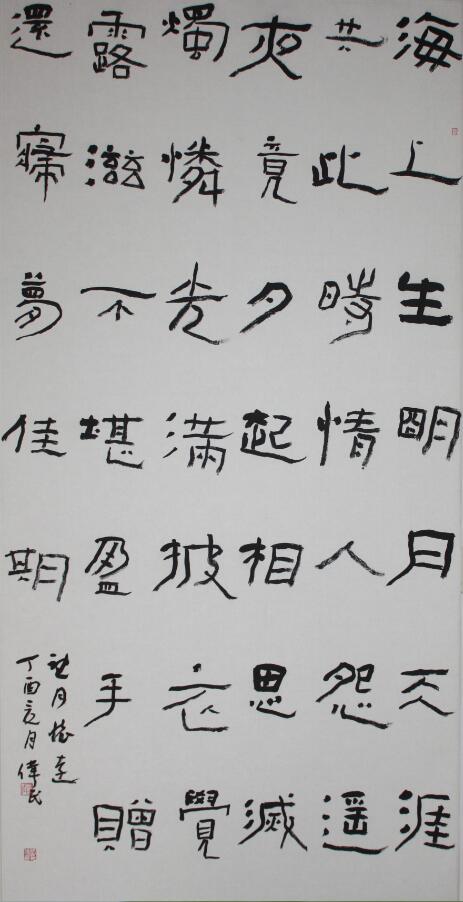 海上生明月天涯
共此時情人怨遥
夜竟夕起相思滅
燭憐光滿披衣覺
露滋不堪盈手贈
還寢夢佳期
望月懷遠
丁酉亥月偉民